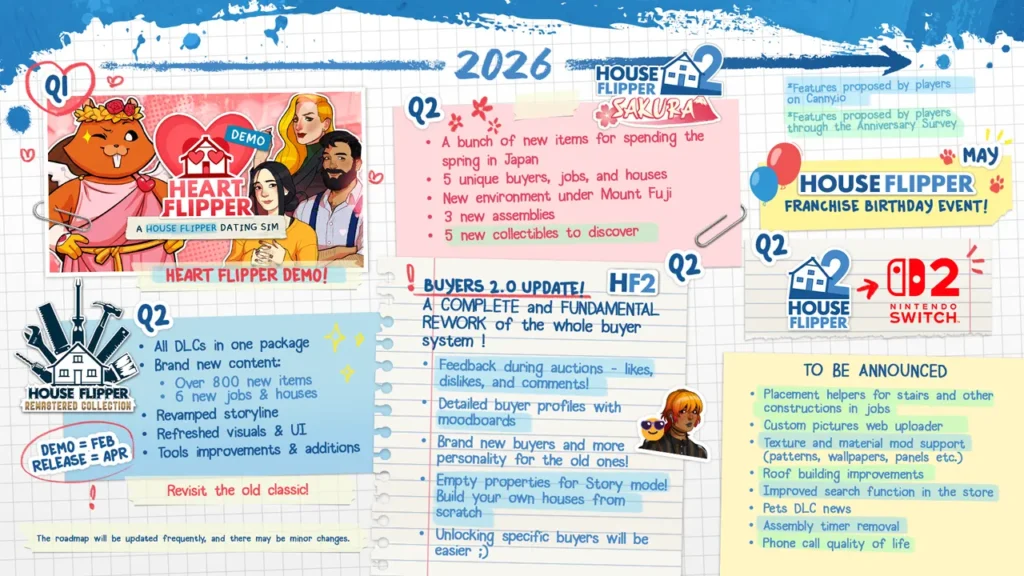 2026
Q1
DEMO
HEART
FLIPPER
A HOUSE FLIPPER DATING SIM
HEART FLIPPER DEMO!
Q2
HOUSE
FLIPPER
2
SAKURA
A bunch of new items for spending the
spring in Japan
5 unique buyers, jobs, and houses
New environment under Mount Fuji
3 new assemblies
5 new collectibles to discover
*Features proposed by players
on Canny.io
*Features proposed by players
through the Anniversary Survey
MAY
HOUSE FLIPPER
FRANCHISE BIRTHDAY EVENT!
Q2
2
HOUSE
FLIPPER
2
NINTENDO
SWITCH
Q2
HOUSE FLIPPER
REMASTERED COLLECTION
DEMO = FEB
RELEASE = APR
• All DLCs in one package
• Brand new content:
• Over 800 new items
• 6 new jobs & houses
• Revamped storyline
• Refreshed visuals & UI
• Tools improvements & additions
Revisit the old classic!
The roadmap will be updated frequently, and there may be minor changes.
Q2
! BUYERS 2.0 UPDATE! HF2
A COMPLETE and FUNDAMENTAL
REWORK of the whole buyer
system !
• Feedback during auctions - likes,
dislikes, and comments!
• Detailed buyer profiles with
moodboards
• Brand new buyers and more
personality for the old ones!
• Empty properties for Story mode!
Build your own houses from
scratch
• Unlocking specific buyers will be
easier ;)
TO BE ANNOUNCED
• Placement helpers for stairs and other
constructions in jobs
• Custom pictures web uploader
• Texture and material mod support
(patterns, wallpapers, panels etc.)
• Roof building improvements
• Improved search function in the store
• Pets DLC news
• Assembly timer removal
• Phone call quality of life